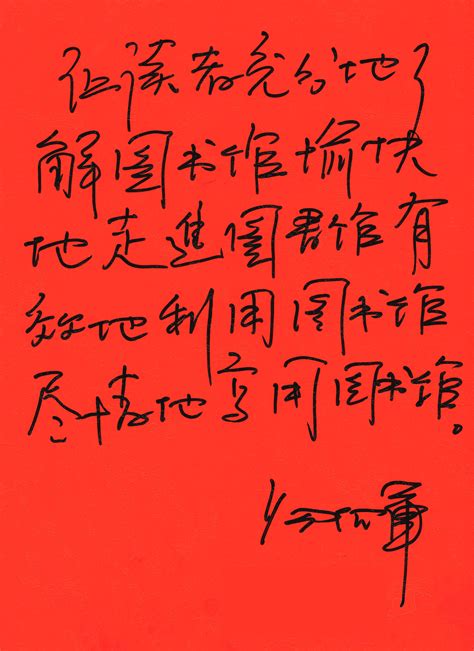 让读者充分地了
解图书馆愉快
地走進图書馆有
效地利用图书馆
尽情地享用图书馆。